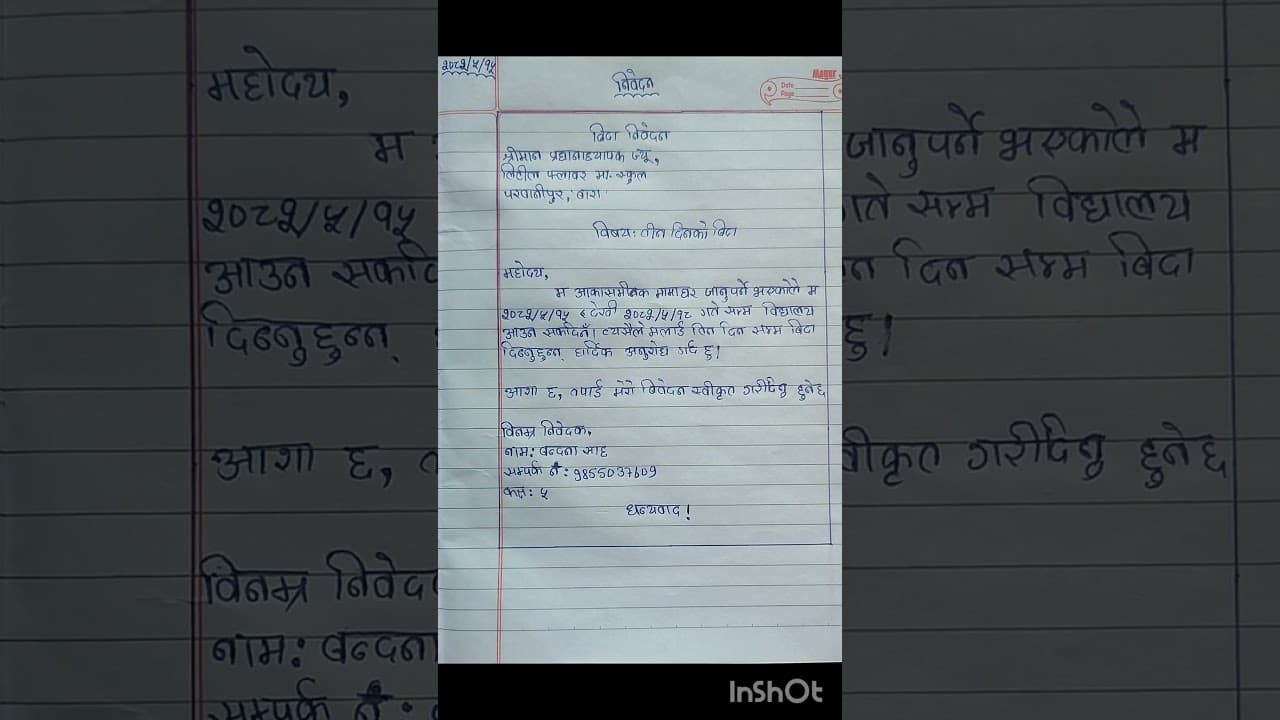 २०८२/५/१५
निवेदन
Date
Page
बिदा निवेदन
श्रीमान प्रधानाध्यापक ज्यू,
लिटील फ्लावर मा. स्कुल
परवानीपुर, बारा
विषय: तीन दिनको बिदा
महोदय,
म आकासमीतक मामाघर जानुपर्ने भएकोले म
२०८२/५/१५ देखी २०८२/५/१८ गते सम्म विद्यालय
आउन सक्दिनँ। त्यसैले मलाई तिन दिन सम्म बिदा
दिनुहुन हार्दिक अनुरोध गर्द छु।
आशा छ, तपाई मेरो निवेदन स्वीकृत गरीदिनु हुनेछ
विनम्र निवेदक,
नाम: बन्दना साह
सम्पर्क नँ: 9855037609
कक्षा: ५
धन्यवाद!
InShOt